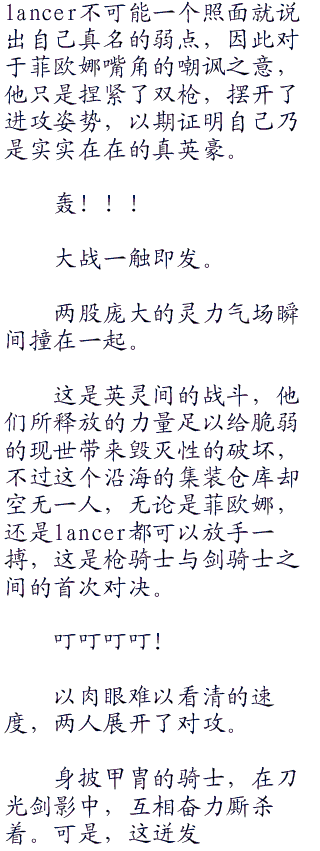 lancer不可能一个照面就说
出自己真名的弱点，因此对
于菲欧娜嘴角的嘲讽之意，
他只是捏紧了双枪，摆开了
进攻姿势，以期证明自己乃
是实实在在的真英豪。
轰！！！
大战一触即发。
两股庞大的灵力气场瞬
间撞在一起。
这是英灵间的战斗，他
们所释放的力量足以给脆弱
的现世带来毁灭性的破坏，
不过这个沿海的集装仓库却
空无一人，无论是菲欧娜，
还是lancer都可以放手一
搏，这是枪骑士与剑骑士之
间的首次对决。
叮叮叮叮！
以肉眼难以看清的速
度，两人展开了对攻。
身披甲胄的骑士，在刀
光剑影中，互相奋力厮杀
着。可是，这迸发